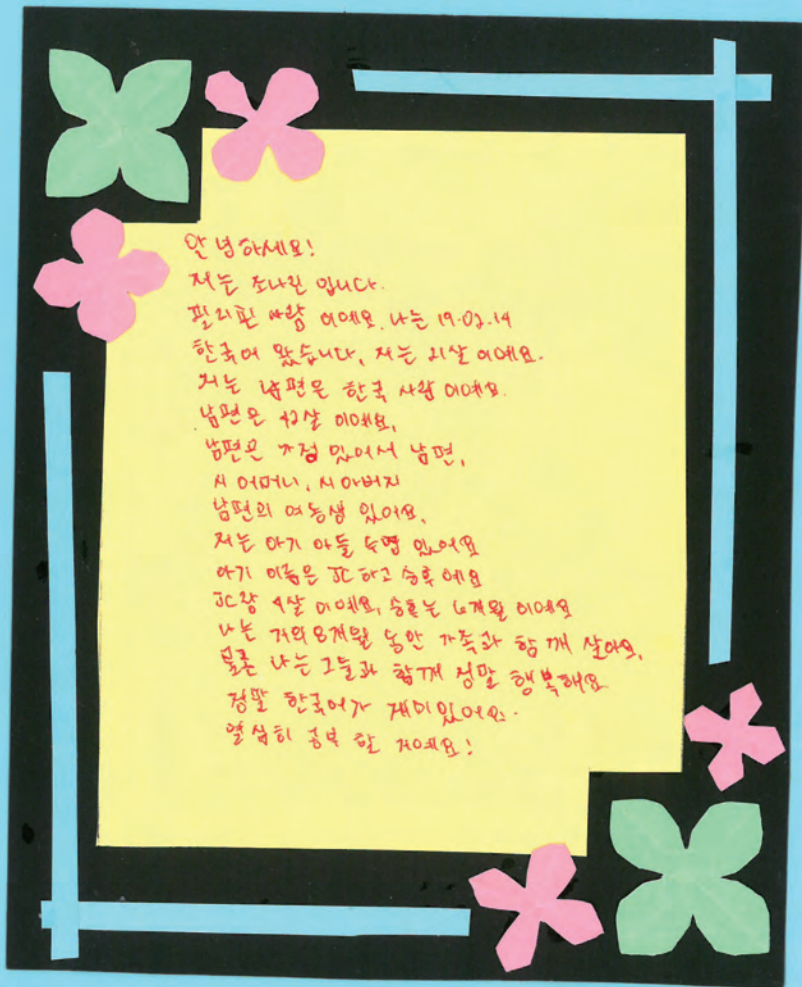 안녕하세요!
저는 조나린 입니다.
필리핀 사람 이에요. 나는 19.02.14
한국어 왔습니다, 저는 21살 이에요.
저는 남편은 한국 사람 이에요.
남편은 42살 이에요,
남편은 가정 있어서 남편,
시 어머니, 시아버지
남편의 여동생 있어요,
저는 아기 아들 두명 있어요
아기 이름은 JC 하고 승후 에요
JC랑 4살 이에요, 승후는 6개월 이에요
나는 거의 8개월 동안 가족과 함께 살아요,
물론 나는 그들과 함께 정말 행복해요
정말 한국어가 재미있어요.
열심히 공부 할 거에요!